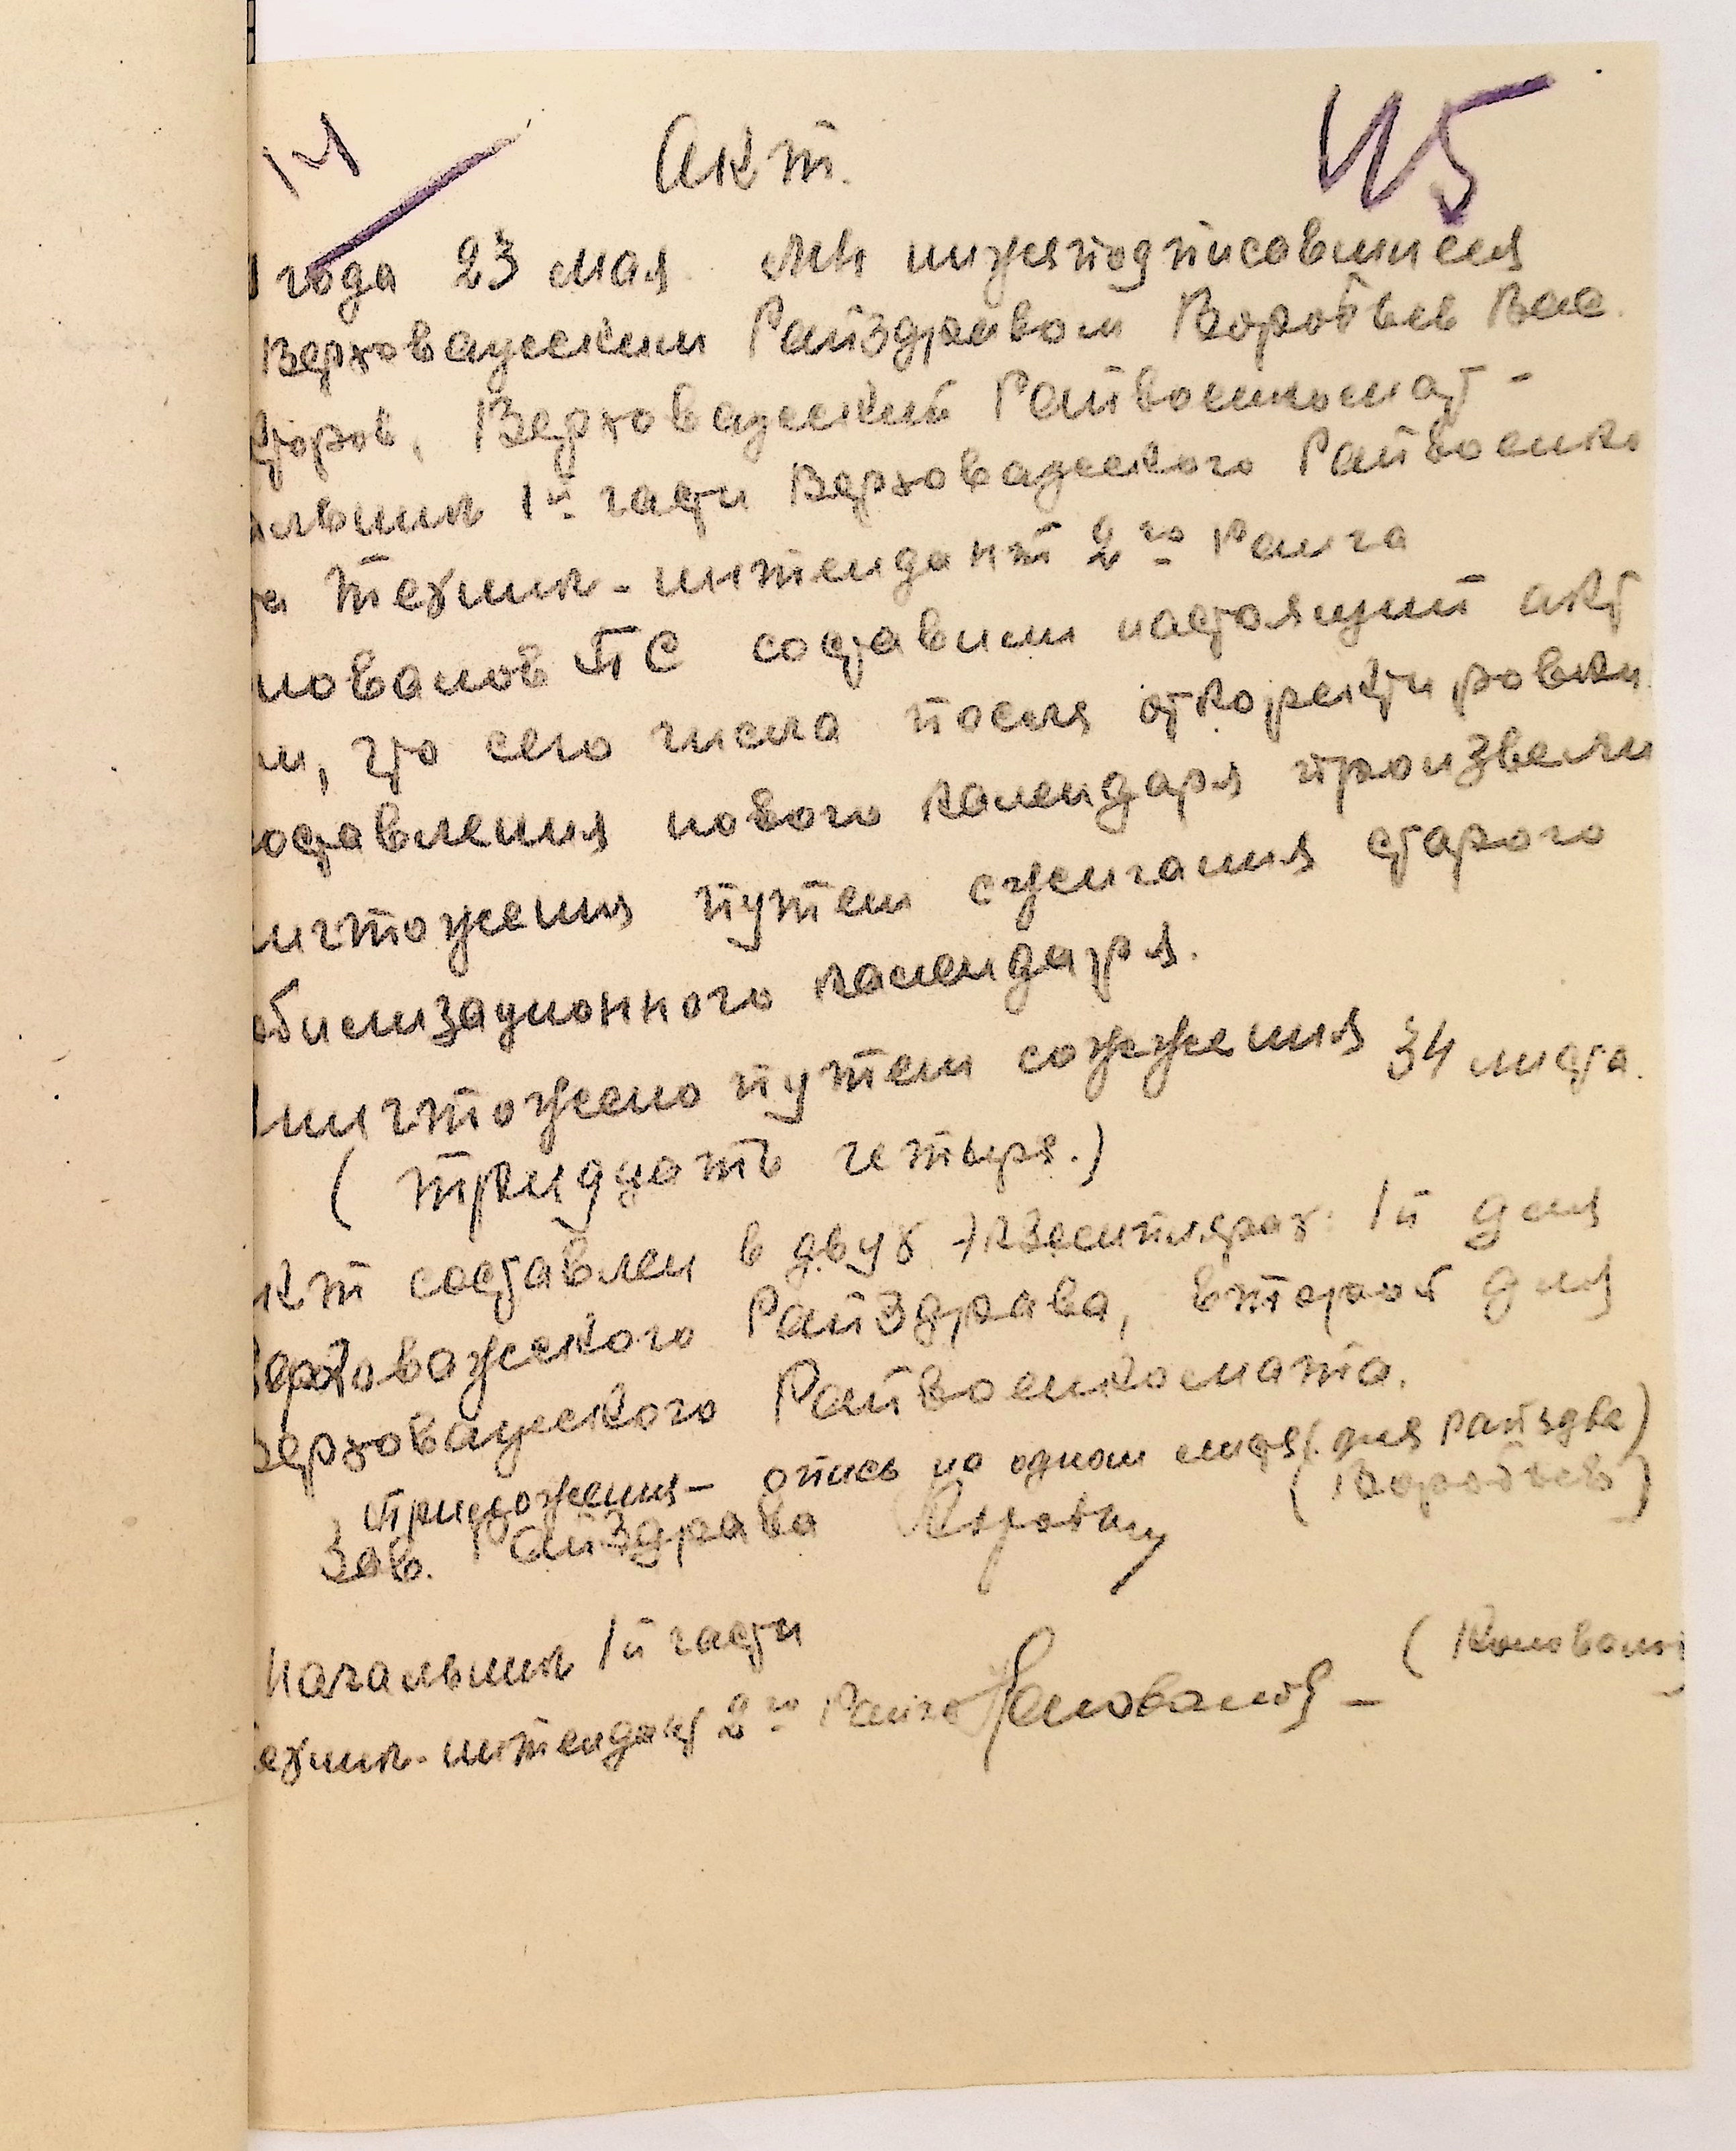 14
Акт.
45
года 23 мая мы нижеподписавшиеся
Верховажским Райздравом Воробьев Вас.
торов, Верховажский Райвоенкомат -
альник 1й части Верховажского Райвоенко
та техник-интендант 2го Ранга
новалов ПС составили настоящий акт
ом, что сего числа после откоректировки
составления нового календаря произвели
ничтожения путем сжигания старого
обилизационного календаря.
уничтожено путем сожжения 34 листа.
( тридцать четыря.)
кт составлен в двух экземплярах: 1й для
Верховажского Райздрава, второй для
Верховажского Райвоенкомата.
приложения - опись на одном листе (для райздва)
Зав. Райздрава (Воробьев)
Начальник 1й части
ехник-интендант 2го Ранга Коновалов - ( Коновало